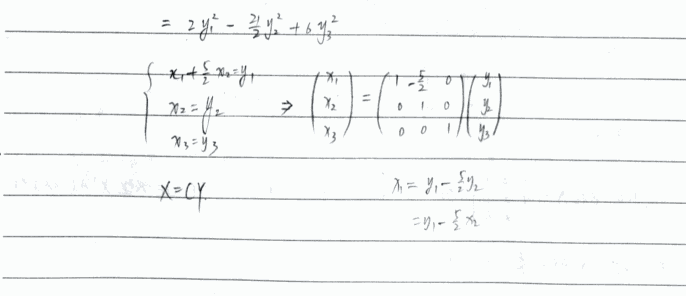 = 2y₁² - 21/2 y₂² + 6y₃²
{ x₁ + 5/2 x₂ = y₁
x₂ = y₂
x₃ = y₃
⇒ (x₁ x₂ x₃) = (1 -5/2 0
0 1 0
0 0 1) (y₁ y₂ y₃)
X = CY
x₁ = y₁ - 5/2 y₂
= y₁ - 5/2 x₂